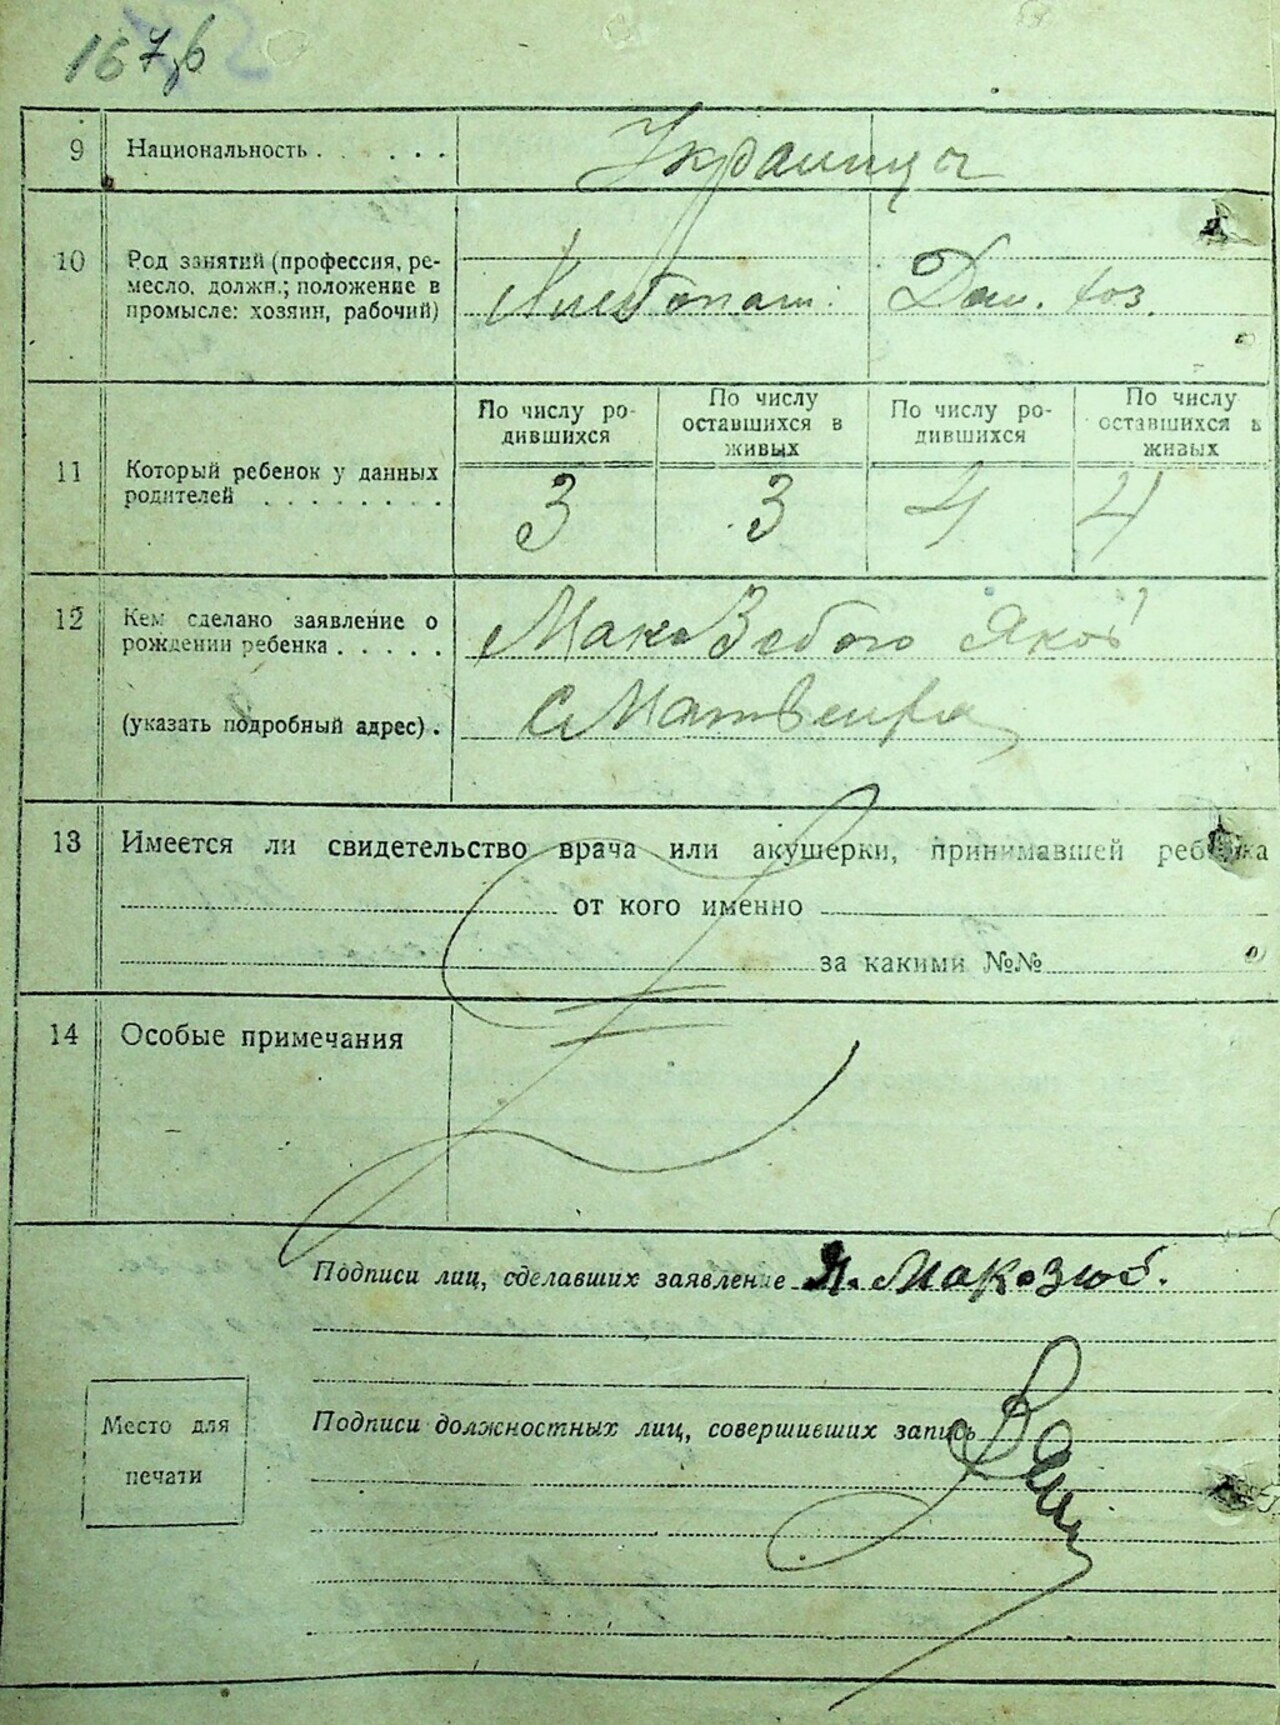 167
9 Национальность . . . . . .
Украинцы
10 Род занятий (профессия, ре-
месло, должн.; положение в
промысле: хозяин, рабочий)
Дом. хоз.
По числу ро-
дившихся
По числу
оставшихся в
живых
По числу ро-
дившихся
По числу
оставшихся в
живых
11 Который ребенок у данных
родителей . . . . . . . .
3 3 4 4
12 Кем сделано заявление о
рождении ребенка . . . . .
Яков
(указать подробный адрес) .
13 Имеется ли свидетельство врача или акушерки, принимавшей ребенка
от кого именно
за какими №№
14 Особые примечания
Подписи лиц, сделавших заявление Я. Макозюб.
Подписи должностных лиц, совершивших запись
Место для
печати